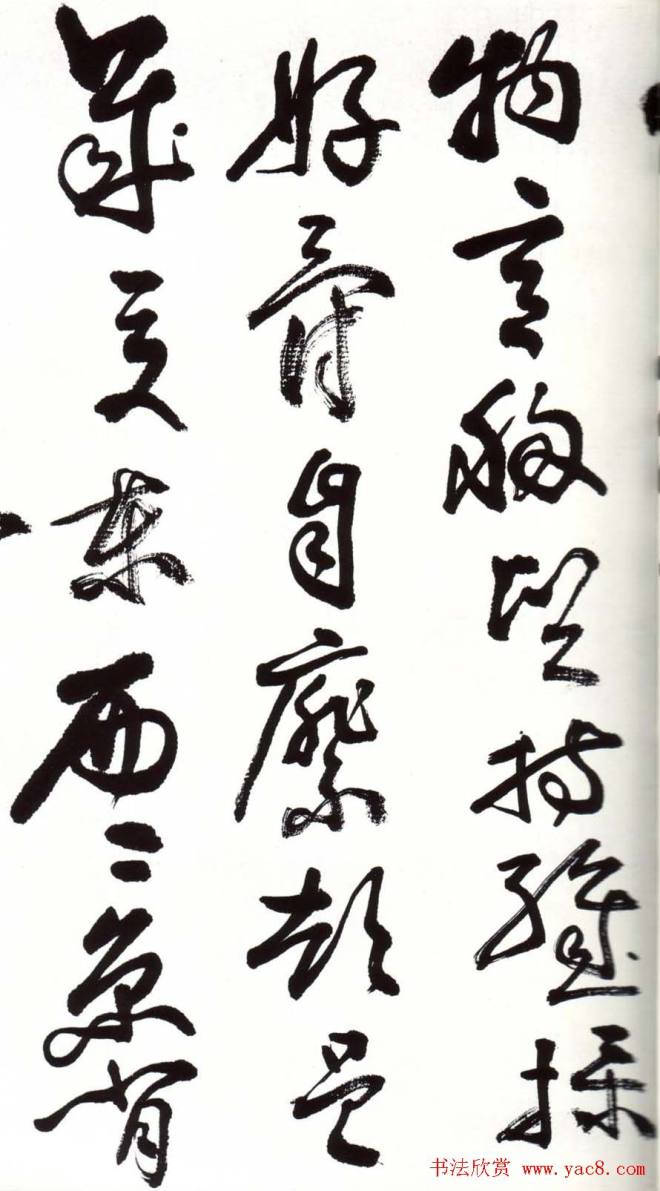 物意移堅持雅操
好爵自縻都邑
華夏東西二京背
书法欣赏 www.yac8.com